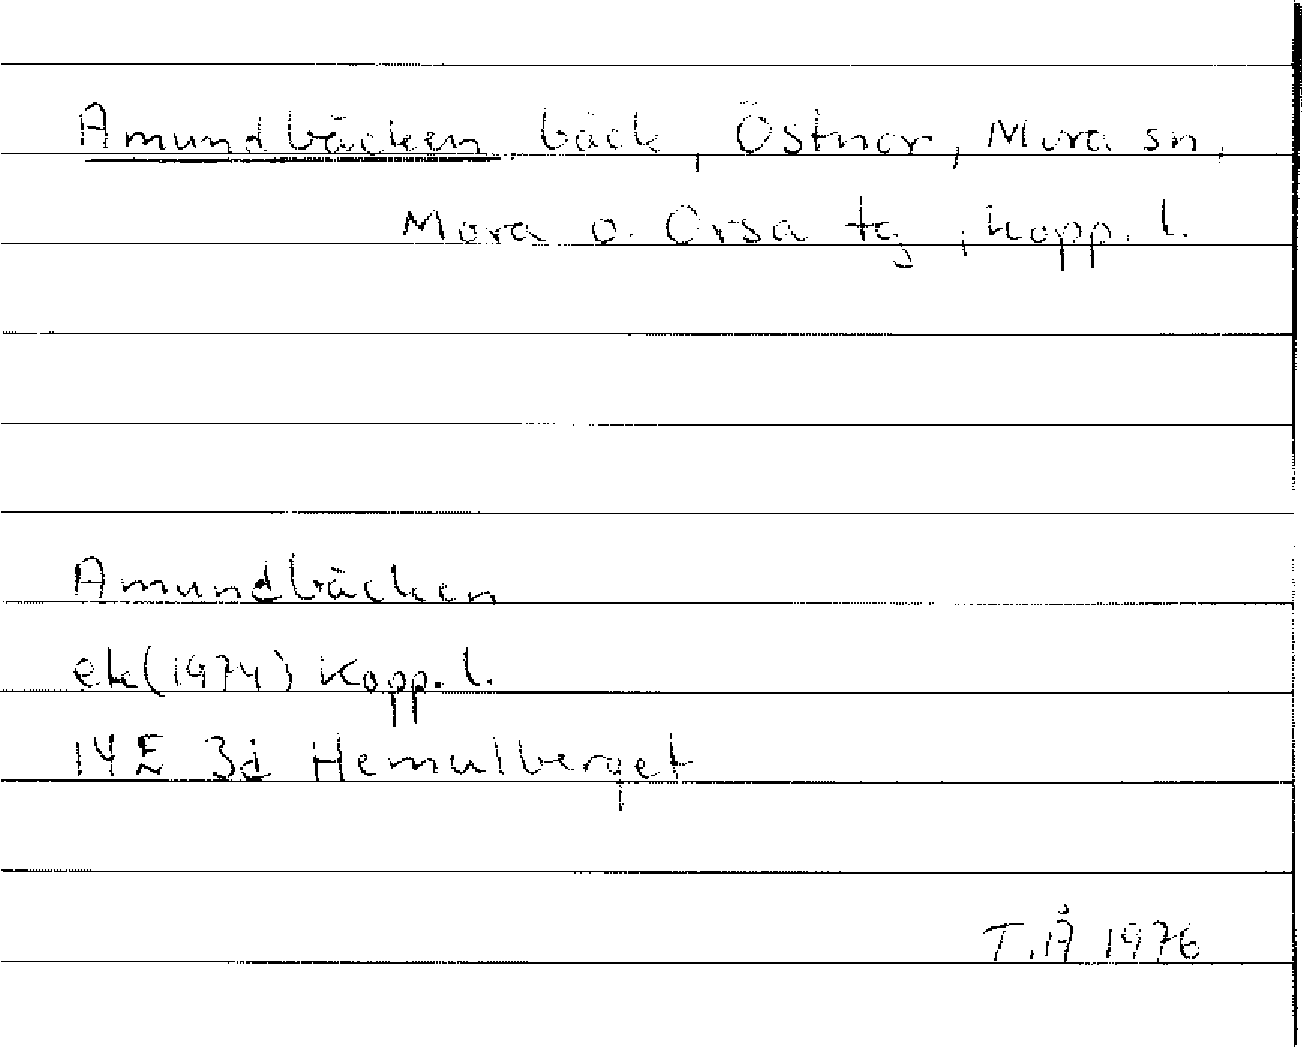 Amundbäcken bäck, Östnor, Mora sn,
Mora o. Orsa tg, Kopp. l.
Amundbäcken
ek(1974) Kopp. l.
14E 3d Hemulberget
T.Å 1976